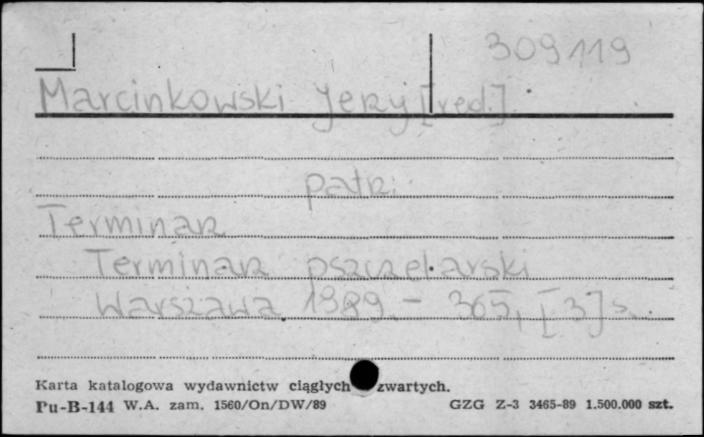 309119
Marcinkowski Jerzy [red.]
patrz:
Terminarz
Terminarz pszczelarski
Warszawa 1989.- 365, [3] s.
Karta katalogowa wydawnictw ciągłych zwartych.
Pu-B-144 W.A. zam. 1560/On/DW/89 GZG Z-3 3465-89 1.500.000 szt.